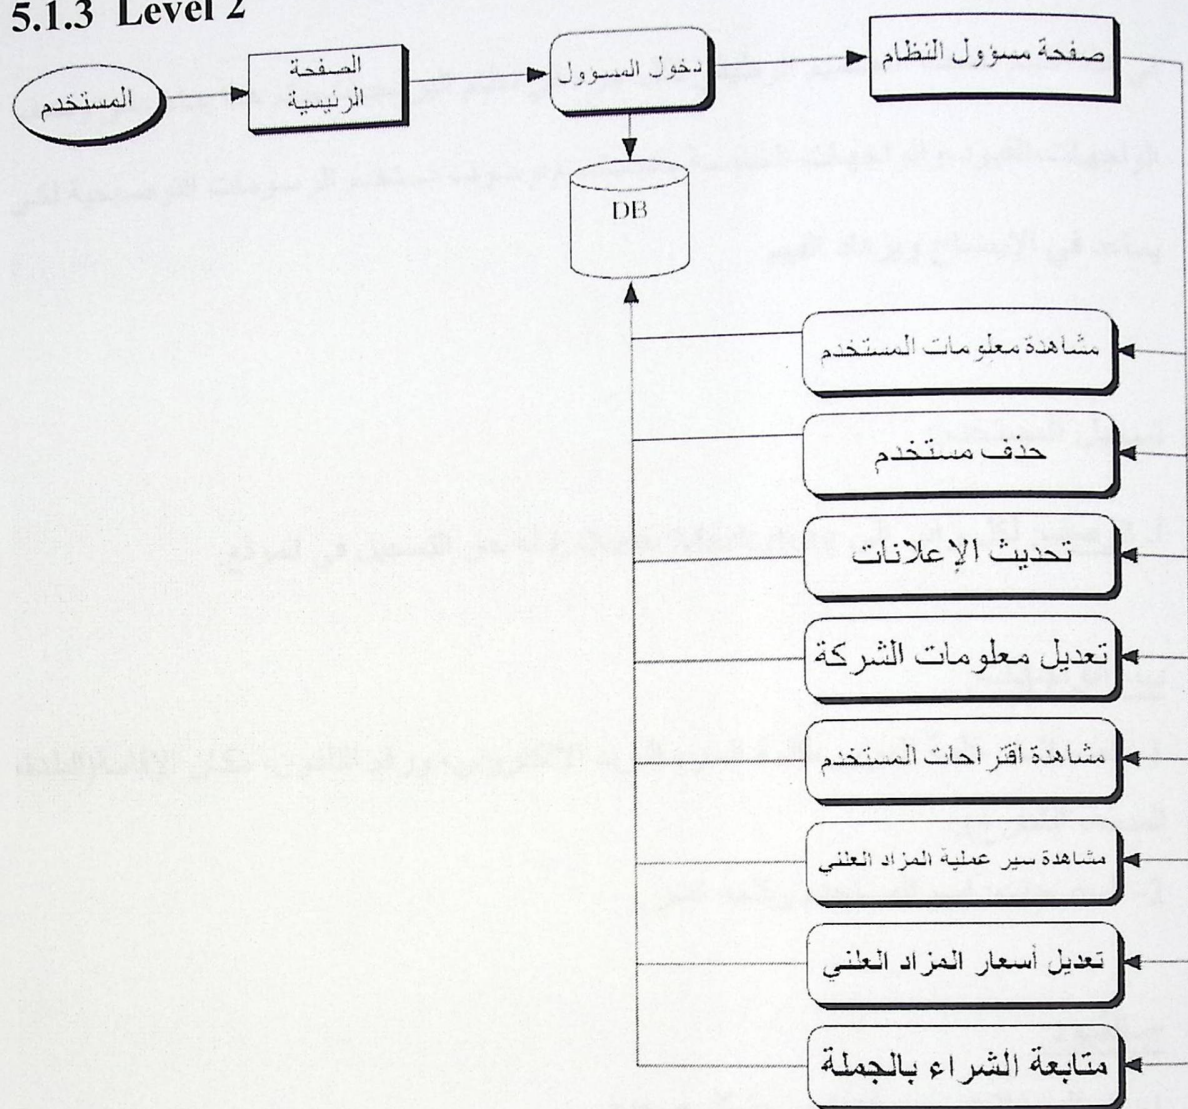 5.1.3 Level 2
المستخدم
الصفحة
الرئيسية
دخول المسؤول
صفحة مسؤول النظام
DB
مشاهدة معلومات المستخدم
حذف مستخدم
تحديث الإعلانات
تعديل معلومات الشركة
مشاهدة اقتراحات المستخدم
مشاهدة سير عملية المزاد العلني
تعديل أسعار المزاد العلني
متابعة الشراء بالجملة